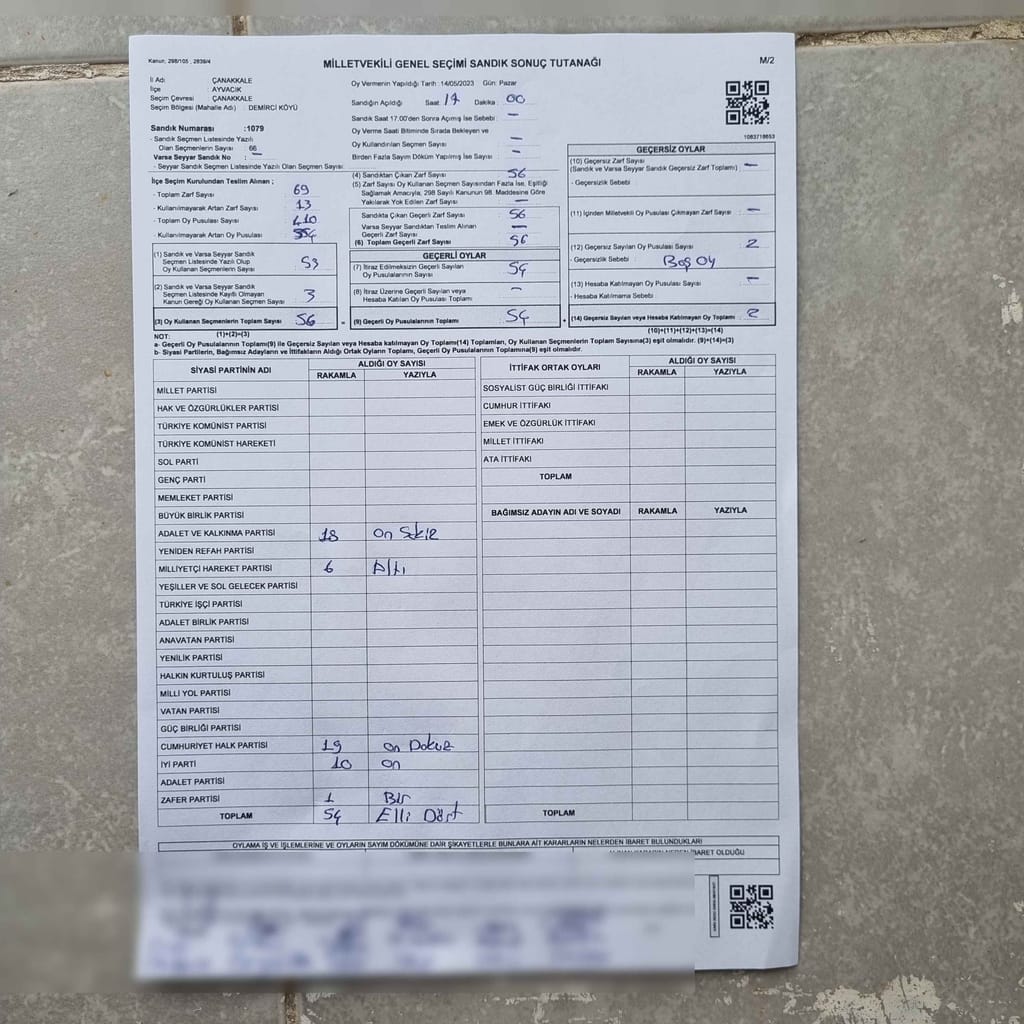 Kanun, 298/105 , 2839/4
MİLLETVEKİLİ GENEL SEÇİMİ SANDIK SONUÇ TUTANAĞI
M/2
İl Adı: ÇANAKKALE
İlçe : AYVACIK
Seçim Çevresi ÇANAKKALE
Seçim Bölgesi (Mahalle Adı) : DEMİRCİ KÖYÜ
Sandık Numarası :1079
- Sandık Seçmen Listesinde Yazılı
Olan Seçmenlerin Sayısı : 66
Varsa Seyyar Sandık No : —
- Seyyar Sandık Seçmen Listesinde Yazılı Olan Seçmen Sayısı:
İlçe Seçim Kurulundan Teslim Alınan ;
- Toplam Zarf Sayısı : 69
- Kullanılmayarak Artan Zarf Sayısı : 13
- Toplam Oy Pusulası Sayısı : 410
- Kullanılmayarak Artan Oy Pusulası : 354
(1) Sandık ve Varsa Seyyar Sandık
Seçmen Listesinde Yazılı Olup
Oy Kullanan Seçmenlerin Sayısı : 53
(2) Sandık ve Varsa Seyyar Sandık
Seçmen Listesinde Kayıtlı Olmayan
Kanun Gereği Oy Kullanan Seçmen Sayısı : 3
(3) Oy Kullanan Seçmenlerin Toplam Sayısı : 56
(1)+(2)=(3)
Oy Vermenin Yapıldığı Tarih :14/05/2023 Gün: Pazar
Sandığın Açıldığı Saat 17 Dakika : 00
Sandık Saat 17.00'den Sonra Açımış İse Sebebi : —
Oy Verme Saati Bitiminde Sırada Bekleyen ve
Oy Kullandırılan Seçmen Sayısı : —
Birden Fazla Sayım Döküm Yapılmış İse Sayısı : —
(4) Sandıktan Çıkan Zarf Sayısı : 56
(5) Zarf Sayısı Oy Kullanan Seçmen Sayısından Fazla İse, Eşitliği
Sağlamak Amacıyla, 298 Sayılı Kanunun 98. Maddesine Göre
Yakılarak Yok Edilen Zarf Sayısı : —
Sandıkta Çıkan Geçerli Zarf Sayısı : 56
Varsa Seyyar Sandıktan Teslim Alınan
Geçerli Zarf Sayısı : —
(6) Toplam Geçerli Zarf Sayısı : 56
GEÇERLİ OYLAR
(7) İtiraz Edilmeksizin Geçerli Sayılan
Oy Pusulalarının Sayısı : 54
(8) İtiraz Üzerine Geçerli Sayılan veya
Hesaba Katılan Oy Pusulası Toplamı : —
= (9) Geçerli Oy Pusulalarının Toplamı : 54
1083718653
GEÇERSİZ OYLAR
(10) Geçersiz Zarf Sayısı
(Sandık ve Varsa Seyyar Sandık Geçersiz Zarf Toplamı) : —
- Geçersizlik Sebebi
(11) İçinden Milletvekili Oy Pusulası Çıkmayan Zarf Sayısı : —
(12) Geçersiz Sayılan Oy Pusulası Sayısı : 2
- Geçersizlik Sebebi : Boş Oy
(13) Hesaba Katılmayan Oy Pusulası Sayısı : —
- Hesaba Katılmama Sebebi
+ (14) Geçersiz Sayılan veya Hesaba Katılmayan Oy Toplamı : 2
(10)+(11)+(12)+(13)=(14)
NOT:
a- Geçerli Oy Pusulalarının Toplamı(9) ile Geçersiz Sayılan veya Hesaba katılmayan Oy Toplamı(14) Toplamları, Oy Kullanan Seçmenlerin Toplam Sayısına(3) eşit olmalıdır. (9)+(14)=(3)
b- Siyasi Partilerin, Bağımsız Adayların ve İttifakların Aldığı Ortak Oyların Toplamı, Geçerli Oy Pusulalarının Toplamına(9) eşit olmalıdır.
SİYASİ PARTİNİN ADI ALDIĞI OY SAYISI
RAKAMLA YAZIYLA
MİLLET PARTİSİ
HAK VE ÖZGÜRLÜKLER PARTİSİ
TÜRKİYE KOMÜNİST PARTİSİ
TÜRKİYE KOMÜNİST HAREKETİ
SOL PARTİ
GENÇ PARTİ
MEMLEKET PARTİSİ
BÜYÜK BİRLİK PARTİSİ
ADALET VE KALKINMA PARTİSİ 18 On Sekiz
YENİDEN REFAH PARTİSİ
MİLLİYETÇİ HAREKET PARTİSİ 6 Altı
YEŞİLLER VE SOL GELECEK PARTİSİ
TÜRKİYE İŞÇİ PARTİSİ
ADALET BİRLİK PARTİSİ
ANAVATAN PARTİSİ
YENİLİK PARTİSİ
HALKIN KURTULUŞ PARTİSİ
MİLLİ YOL PARTİSİ
VATAN PARTİSİ
GÜÇ BİRLİĞİ PARTİSİ
CUMHURİYET HALK PARTİSİ 19 On Dokuz
İYİ PARTİ 10 On
ADALET PARTİSİ
ZAFER PARTİSİ 1 Bir
TOPLAM 54 Elli Dört
İTTİFAK ORTAK OYLARI ALDIĞI OY SAYISI
RAKAMLA YAZIYLA
SOSYALİST GÜÇ BİRLİĞİ İTTİFAKI
CUMHUR İTTİFAKI
EMEK VE ÖZGÜRLÜK İTTİFAKI
MİLLET İTTİFAKI
ATA İTTİFAKI
TOPLAM
BAĞIMSIZ ADAYIN ADI VE SOYADI RAKAMLA YAZIYLA
TOPLAM
OYLAMA İŞ VE İŞLEMLERİNE VE OYLARIN SAYIM DÖKÜMÜNE DAİR ŞİKAYETLERLE BUNLARA AİT KARARLARIN NELERDEN İBARET BULUNDUKLARI
İBARET OLDUĞU